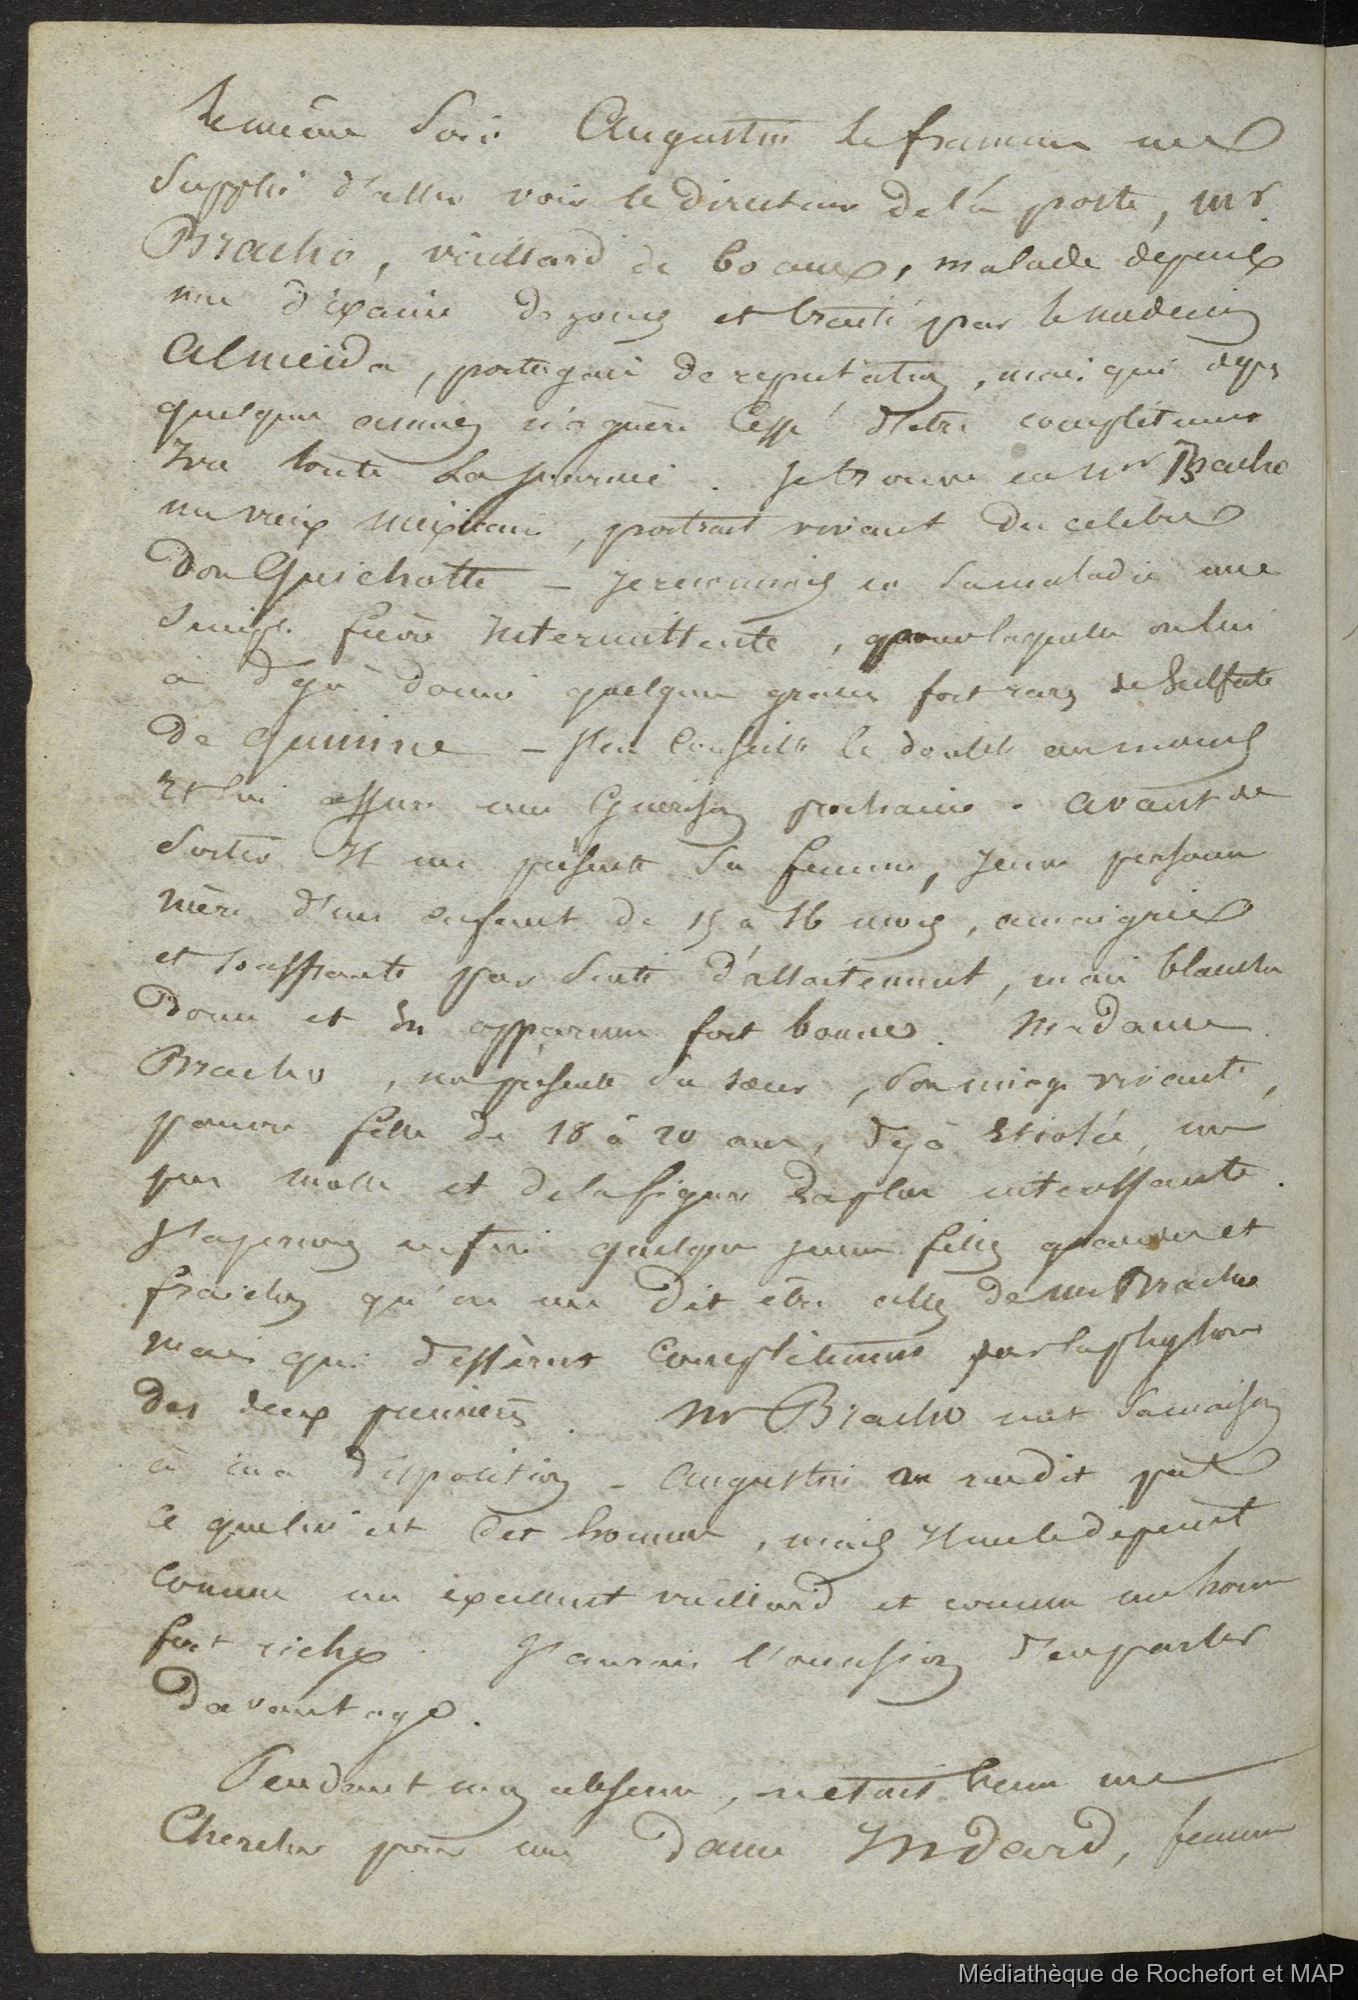 Le même soir Augustin le francais me
supplie d'aller voir le directeur de la poste, mr
Bracho, vieillard de 60 ans, malade depuis
une dixaine de jours et traité par le medecin
Almeida, portugais de reputation, mais qui depuis
quelques années n'a guère cessé d'être complètement
Ivre toute la journée. Je trouve en Mr Bracho
un vieux mexicain, portrait vivant du celebre
Don Quichotte — je reconnais en sa maladie une
simple fièvre Intermittente, pour laquelle on lui
a dejà donné quelques grains fort rares de Sulfate
de quinine — J'en conseille le double au moins
et lui assure une Guerison prochaine. avant de
sortir Il me présente sa femme, jeune personne
mère d'un enfant de 15 a 16 mois, amaigrie
et souffrante par suite d'allaitement, mais blanche
Douce et en apparence fort bonne. Madame
Bracho, me présente sa soeur, son image vivante,
pauvre fille de 18 à 20 ans, dejà Etiolée, un
peu molle et de la figure la plus interessante.
J'aperçois enfin quelques jeunes filles grasses et
fraiches qu'on me dit être celles de mr Bracho
mais qui diffèrent complètement par la physion
des deux premières. Mr Bracho met sa maison
à ma disposition — Augustin ne me dit pas
ce que lui est cet homme, mais Il me le depeint
comme un excellent vieillard et comme un homme
fort riche. J'aurais l'occasion d'en parler
Davantage.
Pendant mon absence, n etait venu me
Chercher pour une Dame Indard, femme
Médiathèque de Rochefort et MAP